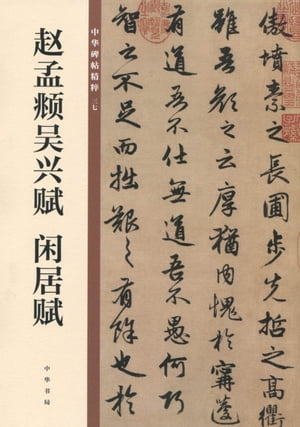 赵孟頫吴兴赋 闲居赋
中华碑帖精粹 三七
中华书局
傲墳素之長圃步先哲之高衢
雖吾顏之云厚猶内愧於甯蘧
有道吾不仕無道吾不愚何巧
智之不足而拙艱之有餘也於